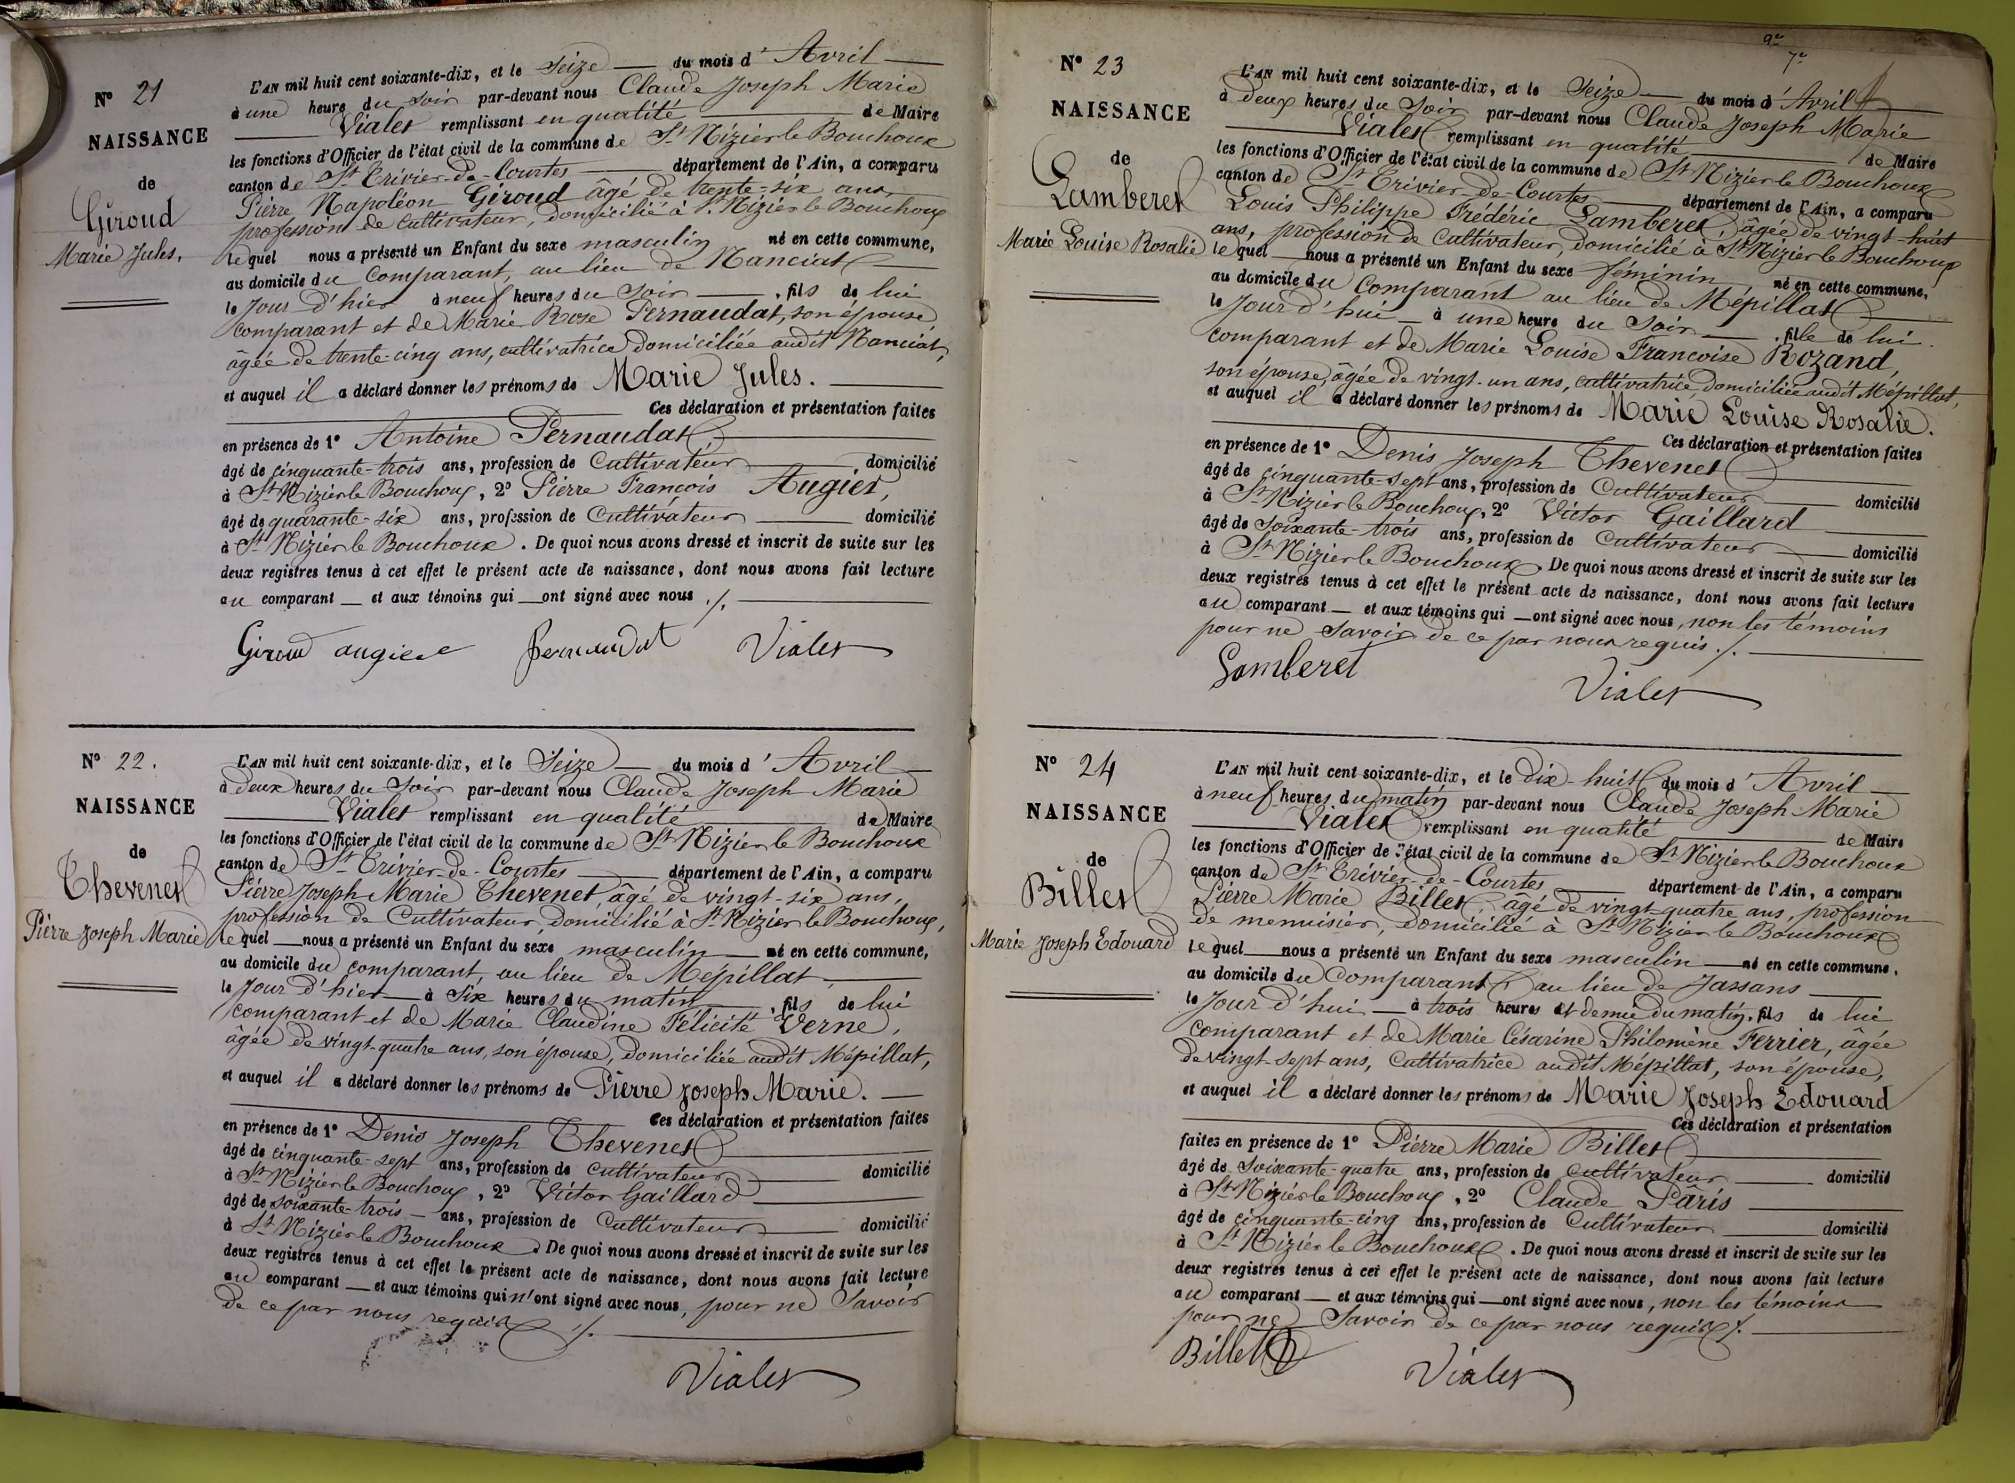 N° 21
NAISSANCE
de
Giroud
Marie Jules.
L'AN mil huit cent soixante-dix, et le Seize du mois d'Avril
à une heure du soir par-devant nous Claude Joseph Marie
Vialet remplissant en qualité de Maire
les fonctions d'Officier de l'état civil de la commune de St Nizier le Bouchoux
canton de St Trivier-de-Courtes département de l'Ain, a comparu
Pierre Napoléon Giroud âgé de trente-six ans
profession de cultivateur, domicilié à St Nizier le Bouchoux
lequel nous a présenté un Enfant du sexe masculin né en cette commune,
au domicile du comparant, au lieu de Nanciat
le jour d'hier à neuf heures du soir, fils de lui
comparant et de Marie Rose Pernaudat, son épouse
âgée de trente-cinq ans, cultivatrice domiciliée audit Nanciat,
et auquel il a déclaré donner les prénoms de Marie Jules.
Ces déclaration et présentation faites
en présence de 1° Antoine Pernaudat,
âgé de cinquante-trois ans, profession de Cultivateur domicilié
à St Nizier le Bouchoux, 2° Pierre François Augier,
âgé de quarante-six ans, profession de Cultivateur domicilié
à St Nizier le Bouchoux. De quoi nous avons dressé et inscrit de suite sur les
deux registres tenus à cet effet le présent acte de naissance, dont nous avons fait lecture
au comparant et aux témoins qui ont signé avec nous ./.
Giroud augier Pernaudat Vialet
N° 22.
NAISSANCE
de
Thevenet
Pierre Joseph Marie
L'AN mil huit cent soixante-dix, et le Seize du mois d'Avril
à deux heures du Soir par-devant nous Claude Joseph Marie
Vialet remplissant en qualité de Maire
les fonctions d'Officier de l'état civil de la commune de St Nizier le Bouchoux
canton de St Trivier-de-Courtes département de l'Ain, a comparu
Pierre Joseph Marie Thevenet, âgé de vingt-six ans,
profession de Cultivateur, domicilié à St Nizier le Bouchoux,
lequel nous a présenté un Enfant du sexe masculin né en cette commune,
au domicile du comparant, au lieu de Mépillat,
le jour d'hier à Six heures du matin, fils de lui
comparant et de Marie Claudine Félicité Verne,
âgée de vingt-quatre ans, son épouse, domiciliée audit Mépillat,
et auquel il a déclaré donner les prénoms de Pierre Joseph Marie.
Ces déclaration et présentation faites
en présence de 1° Denis Joseph Thevenet
âgé de cinquante-sept ans, profession de cultivateur domicilié
à St Nizier le Bouchoux, 2° Victor Gaillard
âgé de soixante-trois ans, profession de Cultivateur domicilié
à St Nizier le Bouchoux. De quoi nous avons dressé et inscrit de suite sur les
deux registres tenus à cet effet le présent acte de naissance, dont nous avons fait lecture
au comparant et aux témoins qui n'ont signé avec nous, pour ne Savoir
de ce par nous requis ./.
Vialet
9e
7e
N° 23
NAISSANCE
de
Lamberet
Marie Louise Rosalie
L'AN mil huit cent soixante-dix, et le Seize du mois d'Avril
à deux heures du Soir par-devant nous Claude Joseph Marie
Vialet remplissant en qualité de Maire
les fonctions d'Officier de l'état civil de la commune de St Nizier le Bouchoux
canton de St Trivier-de-Courtes département de l'Ain, a comparu
Louis Philippe Frédéric Lamberet, âgée de vingt-huit
ans, profession de Cultivateur, domicilié à St Nizier le Bouchoux
lequel nous a présenté un Enfant du sexe féminin né en cette commune,
au domicile du comparant au lieu de Mépillat
le jour d'hui à une heure du Soir, fille de lui
comparant et de Marie Louise Françoise Rozand,
son épouse, âgée de vingt-un ans, cultivatrice, domiciliée audit Mépillat,
et auquel il a déclaré donner les prénoms de Marie Louise Rosalie.
Ces déclaration et présentation faites
en présence de 1° Denis Joseph Thevenet
âgé de cinquante-sept ans, profession de Cultivateur domicilié
à St Nizier le Bouchoux, 2° Victor Gaillard
âgé de soixante-trois ans, profession de Cultivateur domicilié
à St Nizier le Bouchoux. De quoi nous avons dressé et inscrit de suite sur les
deux registres tenus à cet effet le présent acte de naissance, dont nous avons fait lecture
au comparant et aux témoins qui ont signé avec nous, non les témoins
pour ne savoir de ce par nous requis ./.
Lamberet
Vialet
N° 24
NAISSANCE
de
Billet
Marie Joseph Edouard
L'AN mil huit cent soixante-dix, et le dix-huit du mois d'Avril
à neuf heures du matin par-devant nous Claude Joseph Marie
Vialet remplissant en qualité de Maire
les fonctions d'Officier de l'état civil de la commune de St Nizier le Bouchoux
canton de St Trivier-de-Courtes département de l'Ain, a comparu
Pierre Marie Billet, âgé de vingt-quatre ans, profession
de menuisier, domicilié à St Nizier le Bouchoux
lequel nous a présenté un Enfant du sexe masculin né en cette commune,
au domicile du Comparant, au lieu de Jassans
le jour d'hui à trois heures et demie du matin, fils de lui
comparant et de Marie Césarine Philomène Ferrier, âgée
de vingt-sept ans, Cultivatrice audit Mépillat, son épouse,
et auquel il a déclaré donner les prénoms de Marie Joseph Edouard
Ces déclaration et présentation
faites en présence de 1° Pierre Marie Billet
âgé de soixante-quatre ans, profession de cultivateur domicilié
à St Nizier le Bouchoux, 2° Claude Pâris
âgé de cinquante-cinq ans, profession de Cultivateur domicilié
à St Nizier le Bouchoux. De quoi nous avons dressé et inscrit de suite sur les
deux registres tenus à cet effet le présent acte de naissance, dont nous avons fait lecture
au comparant et aux témoins qui ont signé avec nous, non les témoins
pour ne Savoir de ce par nous requis ./.
Billet Vialet